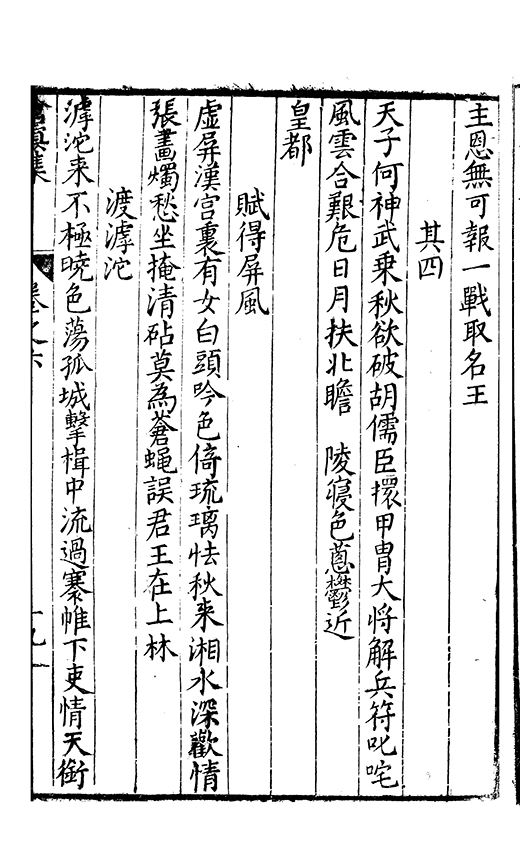 主恩無可報一戰取名王
其四
天子何神武乗秋欲破胡儒臣擐甲胄大将解兵符叱咤
風雲合艱危日月扶北瞻　陵寝色蔥鬱近
皇都
賦得屏風
虚屏漢宫裏有女白頭吟色倚琉璃怯秋来湘水深歡情
張畫燭愁坐掩清砧莫為蒼蝇誤君王在上林
渡滹沱
滹沱来不極曉色蕩孤城擊楫中流過褰帷下吏情天銜
卷之六